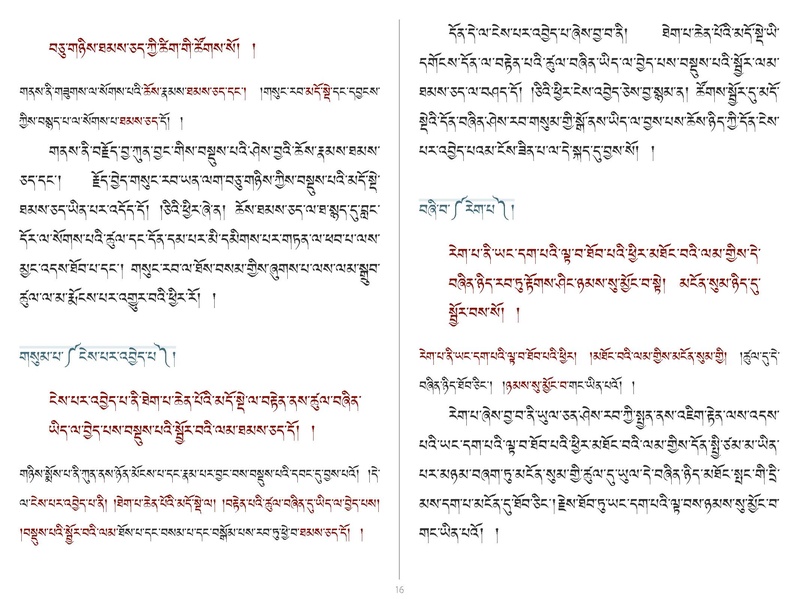 བཅུ་གཉིས་ཐམས་ཅད་ཀྱི་ཚིག་གི་ཚོགས་སོ། །
གནས་ནི་གཟུགས་ལ་སོགས་པའི་ཆོས་རྣམས་ཐམས་ཅད་དང་། །གསུང་རབ་མདོ་སྡེ་དང་དབྱངས་
ཀྱིས་བསྙད་པ་ལ་སོགས་པ་ཐམས་ཅད་དོ། །
གནས་ནི་བརྗོད་བྱ་ཀུན་བྱང་གིས་བསྡུས་པའི་ཤེས་བྱའི་ཆོས་རྣམས་ཐམས་
ཅད་དང་། རྗོད་བྱེད་གསུང་རབ་ཡན་ལག་བཅུ་གཉིས་ཀྱིས་བསྡུས་པའི་མདོ་སྡེ་
ཐམས་ཅད་ཡིན་པར་འདོད་དོ། །ཅིའི་ཕྱིར་ཞེ་ན། ཆོས་ཐམས་ཅད་ལ་ཐ་སྙད་དུ་བླང་
དོར་ལ་སོགས་པའི་ཚུལ་དང་དོན་དམ་པར་མི་དམིགས་པར་གཏན་ལ་ཕབ་པ་ལས་
མྱང་འདས་ཐོབ་པ་དང་། གསུང་རབ་ལ་ཐོས་བསམ་གྱིས་ཞུགས་པ་ལས་ལམ་སྒྲུབ་
ཚུལ་ལ་མ་རྨོངས་པར་འགྱུར་བའི་ཕྱིར་རོ། །
གསུམ་པ་༼ངེས་པར་འབྱེད་པ་༽།
ངེས་པར་འབྱེད་པ་ནི་ཐེག་པ་ཆེན་པོའི་མདོ་སྡེ་ལ་བརྟེན་ནས་ཚུལ་བཞིན་
ཡིད་ལ་བྱེད་པས་བསྡུས་པའི་སྦྱོར་བའི་ལམ་ཐམས་ཅད་དོ། །
གཉིས་སྨོས་པ་ནི་ཀུན་ནས་ཉོན་མོངས་པ་དང་རྣམ་པར་བྱང་བས་བསྡུས་པའི་དབང་དུ་བྱས་པའོ། །དེ་
ལ་ངེས་པར་འབྱེད་པ་ནི། །ཐེག་པ་ཆེན་པོའི་མདོ་སྡེ་ལ། །བརྟེན་པའི་ཚུལ་བཞིན་དུ་ཡིད་ལ་བྱེད་པས།
།བསྡུས་པའི་སྦྱོར་བའི་ལམ་ཐོས་པ་དང་བསམ་པ་དང་བསྒོམ་པས་རབ་ཏུ་ཕྱེ་བ་ཐམས་ཅད་དོ། །
དོན་དེ་ལ་ངེས་པར་འབྱེད་པ་ཞེས་བྱ་བ་ནི། ཐེག་པ་ཆེན་པོའི་མདོ་སྡེ་ཡི་
དགོངས་དོན་ལ་བརྟེན་པའི་ཚུལ་བཞིན་ཡིད་ལ་བྱེད་པས་བསྡུས་པའི་སྦྱོར་ལམ་
ཐམས་ཅད་ལ་བཤད་དོ། །ཅིའི་ཕྱིར་ངེས་འབྱེད་ཅེས་བྱ་སྙམ་ན། ཚོགས་སྦྱོར་དུ་མདོ་
སྡེའི་དོན་བཞིན་ཤེས་རབ་གསུམ་གྱི་སྒོ་ནས་ཡིད་ལ་བྱས་པས་ཆོས་ཉིད་ཀྱི་དོན་ངེས་
པར་འབྱེད་པའམ་ངོས་ཟིན་པ་ལ་དེ་སྐད་དུ་བྱས་སོ། །
བཞི་བ་༼རེག་པ་༽།
རེག་པ་ནི་ཡང་དག་པའི་ལྟ་བ་ཐོབ་པའི་ཕྱིར་མཐོང་བའི་ལམ་གྱིས་དེ་
བཞིན་ཉིད་རབ་ཏུ་རྟོགས་ཤིང་ཉམས་སུ་མྱོང་བ་སྟེ། མངོན་སུམ་ཉིད་དུ་
སྦྱོར་བས་སོ། །
རེག་པ་ནི་ཡང་དག་པའི་ལྟ་བ་ཐོབ་པའི་ཕྱིར། །མཐོང་བའི་ལམ་གྱིས་མངོན་སུམ་གྱི། །ཚུལ་དུ་དེ་
བཞིན་ཉིད་ཐོབ་ཅིང་། །ཉམས་སུ་མྱོང་བ་གང་ཡིན་པའོ། །
རེག་པ་ཞེས་བྱ་བ་ནི་ཡུལ་ཅན་ཤེས་རབ་ཀྱི་སྤྱན་ནས་འཇིག་རྟེན་ལས་འདས་
པའི་ཡང་དག་པའི་ལྟ་བ་ཐོབ་པའི་ཕྱིར་མཐོང་བའི་ལམ་གྱིས་དོན་སྤྱི་ཙམ་མ་ཡིན་
པར་མཉམ་བཞག་ཏུ་མངོན་སུམ་གྱི་ཚུལ་དུ་ཡུལ་དེ་བཞིན་ཉིད་མཐོང་སྤང་གི་དྲི་
མས་དག་པ་མངོན་དུ་ཐོབ་ཅིང་། རྗེས་ཐོབ་ཏུ་ཡང་དག་པའི་ལྟ་བས་ཉམས་སུ་མྱོང་བ་
གང་ཡིན་པའོ། །
16